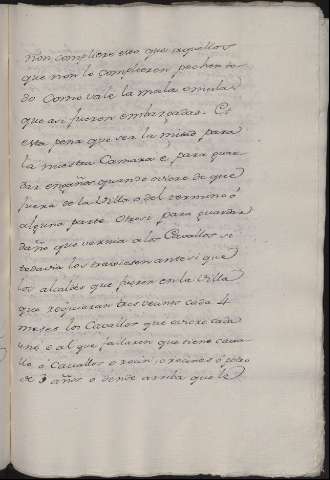 non compliere esto que aquellos
que non lo complieren pechen to
do como vale la mala emula
que asi fueron embargadas. E
esta pena que sea la mitad para
la nuestra Camara e para guar
dar engaños quando oviere de que
fuera de la Villa o del termino ó
alguna parte. Otrosi para guardar
daño que vernia a los Cavallos si
todavia los troxiesen ante si que
los alcaldes que fueren en la Villa
que requieran tres veuno cada 4
meses los Cavallos que oviere cada
uno e al que fallaren que tiene cava
llo ó Cavallos ó rocin, o rocines ó potro
de 3 años o dende arriba que le